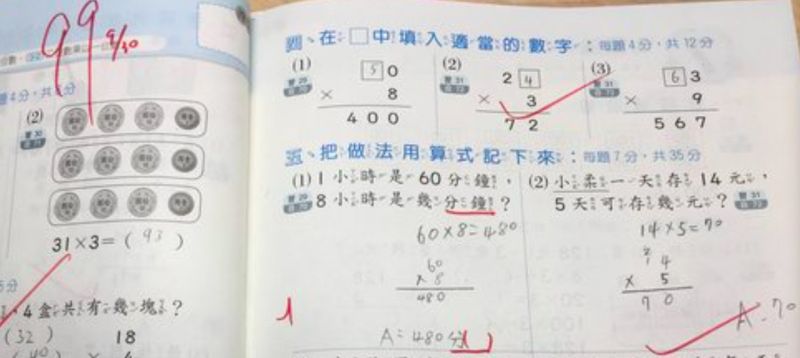 99 9/30
(2)
31×3=( 93 )
4盒共有幾塊?
(32)
18
四、在□中填入適當的數字:每題4分,共12分
(1) 50
× 8
400
(2) 24
× 3
72
(3) 63
× 9
567
五、把做法用算式記下來:每題7分,共35分
(1) 1小時是60分鐘,
8小時是幾分鐘?
60×8=480
60
×8
480
A=480分
(2) 小柔一天存14元,
5天可存幾元?
14×5=70
14
× 5
70
A:70